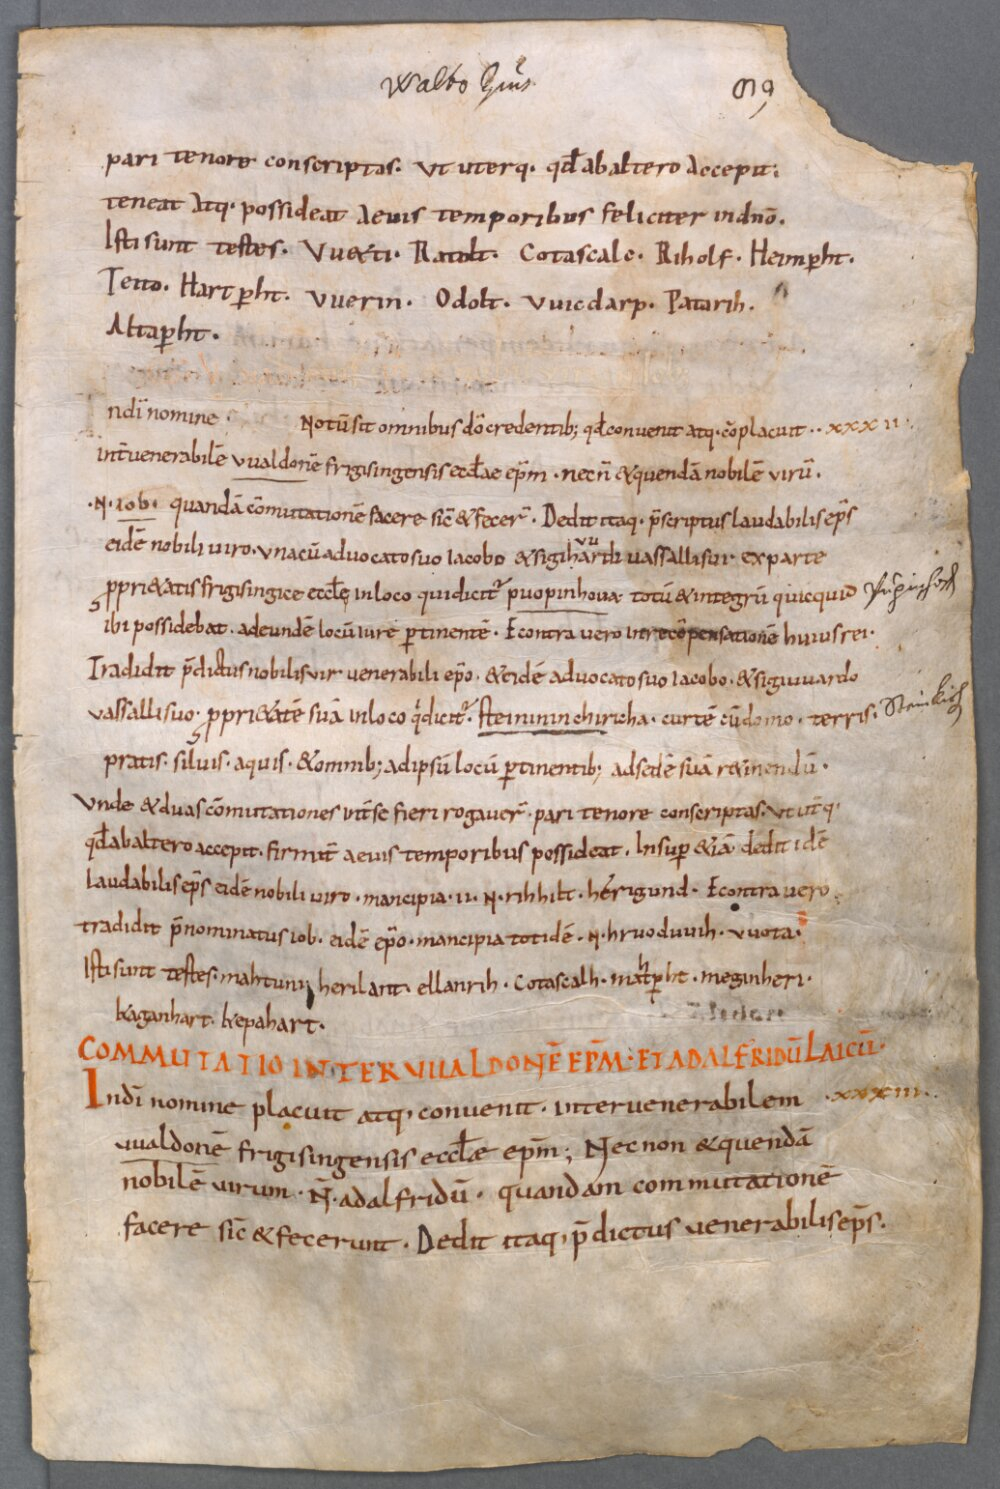 Waldo Eps
pari tenore conscriptas. ut uterq. qd̄ ab altero accepit.
teneat atq. possideat aeuis temporibus feliciter in dnō.
Isti sunt testes. Vuexti. Ratolt. Cotascalc. Riholf. Heimp̄ht.
Tetto. Hartp̄ht. vuerin. Odolt. vuicdarp. Patarih.
Altap̄ht.
ndī nomine. Notū sit omnibus dō credentib; qd̄ conuenit atq. cōplacuit .. xxxii.
int̄ uenerabilē vualdonē frigisingensis eccl̄ae ep̄m. necn̄ & quendā nobilē virū.
.N. iob. quandā cōmutationē facere sic̄ & fecer̄. Dedit itaq. p̄scriptus laudabilis ep̄s
eidē nobili uiro. vna cū aduocato suo Iacobo & sigihardi vassalli sui ex parte
vu
ꝓpri&atis frigisingice eccl̄ę in loco qui dicit̄ puopinhoua totū & integrū quicquid
ibi possidebat. ad eundē locū iure p̄tinentē. Econtra uero in recōpensationē huius rei.
Tradidit p̄dictus nobilis vir uenerabili ep̄o. & eidē aduocato suo Iacobo. & sigiuuardo
vassalli suo. ꝓpri&atē suā in loco qd̄icit̄. steininin chiricha. curtē cū domo. terris. Steinkirch
pratis. siluis. aquis. & omnib; ad ipsū locū p̄tinentib; ad sedē suā r&inendū.
Vnde & duas cōmutationes int̄ se fieri rogauer̄. pari tenore conscriptas. ut ut̄q.
qd̄ ab altero accepit. firmit̄ aeuis temporibus possideat. Insup̄ &iā dedit idē
laudabilis ep̄s eidē nobili uiro. mancipia. ii. N. rihhilt. herigund. Econtra uero
tradidit p̄nominatus iob. eidē ep̄o. mancipia totidē. N. hruoduuih. vuota.
Isti sunt testes. mahtuni herilant. ellanrih. Cotascalh. mahtp̄ht. meginheri.
kaganhart. kepahart.
COMMUTATIO INTER VUALDONĒ EP̄M. ET ADALFRIDŪ LAICŪ.
Indī nomine placuit atq. conuenit. inter uenerabilem .xxxiii..
vualdonē frigisingensis eccl̄æ ep̄m; Nec non & quendā
nobilē uirum. N̄. adalfridū. quandam commutationē
facere sic̄ & fecerunt. Dedit itaq. p̄dictus uenerabilis ep̄s.